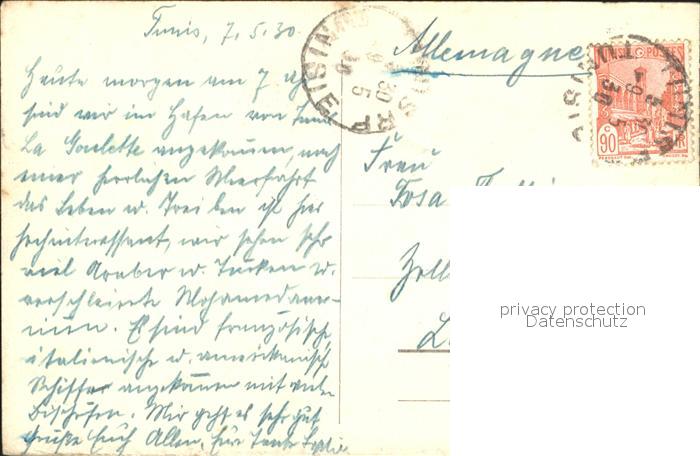 Tunis, 7.5.30.
Heute morgen um 7 Uhr
sind wir im Hafen von Tunis
La Goulette angekommen, nach
einer herrlichen Meerfahrt
das Leben u. Treiben ist hier
hochinteressant, wir sehen sehr
viel Araber u. Türken u.
verschleierte Mohamedaner-
innen. Es sind französische,
italienische u. amerikanische
Schiffe angekommen mit vielen
Bischöfen. Mir geht es sehr gut
Grüße Euch Allen, Eure Tante
Allemagne
Frau
TUNISIE
POSTES
90
C
90
TUNIS R.P.
TUNISIE
5
30
privacy protection
Datenschutz